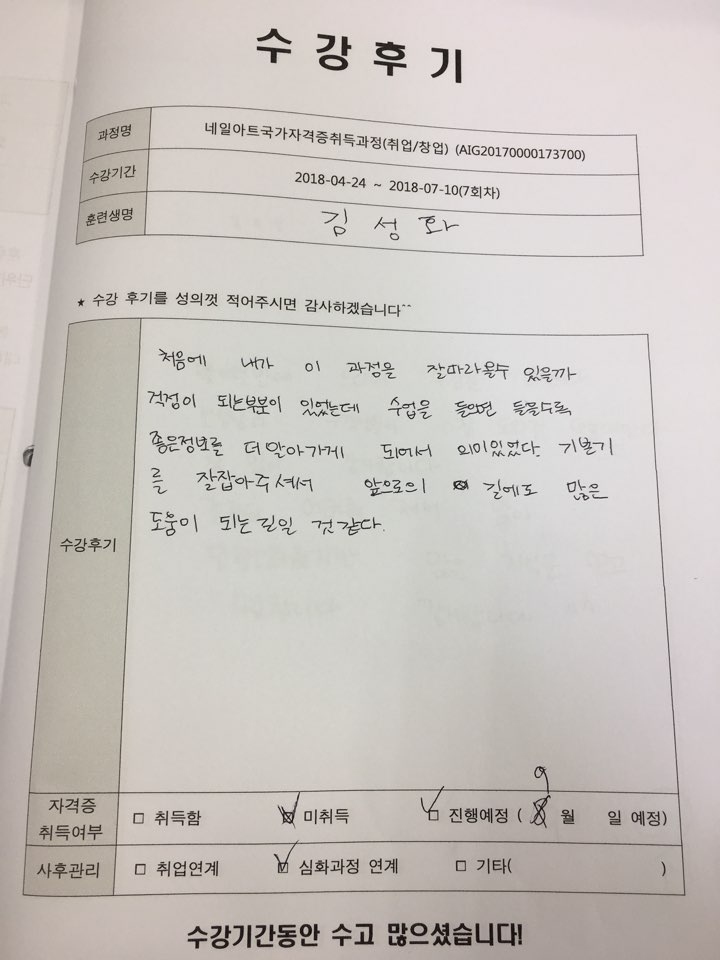 수강후기
과정명 네일아트국가자격증취득과정(취업/창업) (AIG20170000173700)
수강기간 2018-04-24 ~ 2018-07-10(7회차)
훈련생명 김성화
★ 수강 후기를 성의껏 적어주시면 감사하겠습니다^^
수강후기
처음에 내가 이 과정을 잘따라올수 있을까
걱정이 되는부분이 있었는데 수업을 들으면 들을수록
좋은정보를 더 알아가게 되어서 의미있었다. 기본기
를 잘잡아주셔서 앞으로의 길에도 많은
도움이 되는길일 것같다.
자격증 취득여부 □ 취득함 ☑ 미취득 ☑ 진행예정 ( 9 월 일 예정)
사후관리 □ 취업연계 ☑ 심화과정 연계 □ 기타( )
수강기간동안 수고 많으셨습니다!